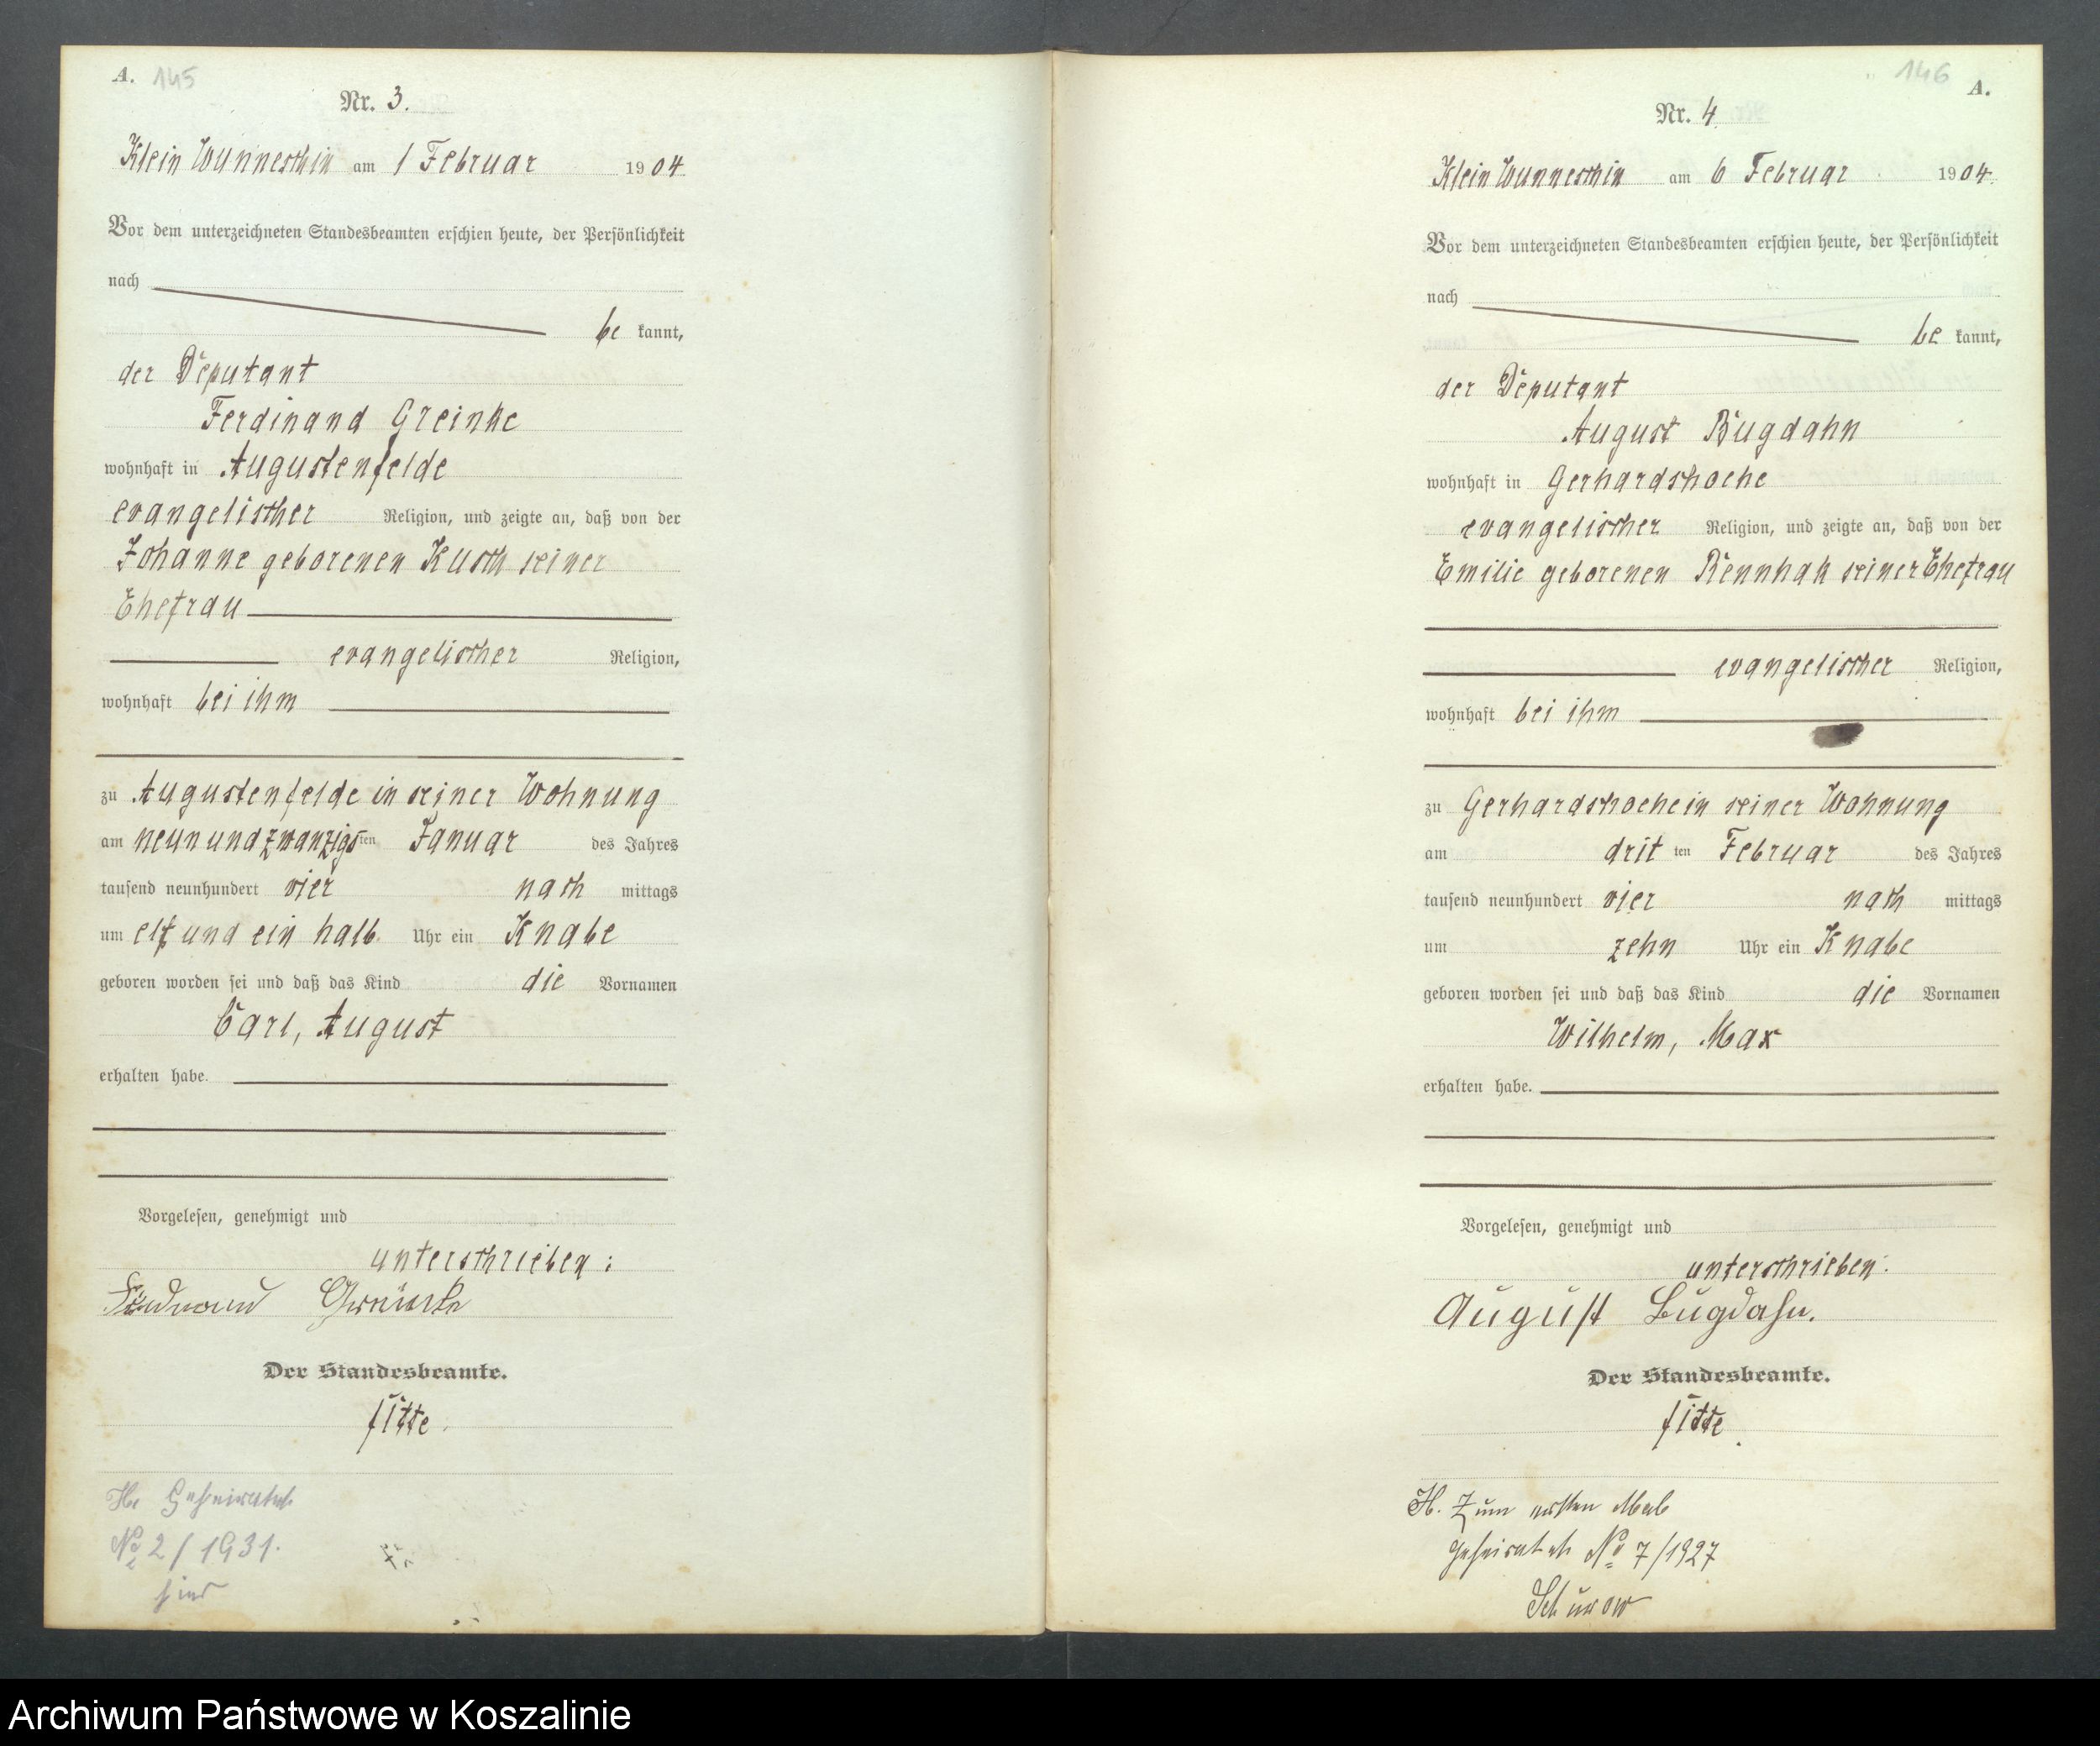 A. 145
Nr. 3.
Klein Wunneschin am 1 Februar 1904
Vor dem unterzeichneten Standesbeamten erschien heute, der Persönlichkeit
nach
be kannt,
der Deputant
Ferdinand Greinke
wohnhaft in Augustenfelde
evangelischer Religion, und zeigte an, daß von der
Johanne geborenen Kusch seiner
Ehefrau
evangelischer Religion,
wohnhaft bei ihm
zu Augustenfelde in seiner Wohnung
am neunundzwanzigsten Januar des Jahres
tausend neunhundert vier nach mittags
um elf und ein halb Uhr ein Knabe
geboren worden sei und daß das Kind die Vornamen
Carl, August
erhalten habe.
Vorgelesen, genehmigt und
unterschrieben:
Ferdinand Greinke
Der Standesbeamte.
fitte
Geheiratet
No 2/1931.
146 A.
Nr. 4
Klein Wunneschin am 6 Februar 1904.
Vor dem unterzeichneten Standesbeamten erschien heute, der Persönlichkeit
nach
be kannt,
der Deputant
August Bugdahn
wohnhaft in Gerhardshoehe
evangelischer Religion, und zeigte an, daß von der
Emilie geborenen Rennhak seiner Ehefrau
evangelischer Religion,
wohnhaft bei ihm
zu Gerhardshoehe in seiner Wohnung
am dritten Februar des Jahres
tausend neunhundert vier nach mittags
um zehn Uhr ein Knabe
geboren worden sei und daß das Kind die Vornamen
Wilhelm, Max
erhalten habe.
Vorgelesen, genehmigt und
unterschrieben:
August Bugdahn.
Der Standesbeamte.
fitte
H. Zum ersten Mal
geheiratet No 7/1927
Archiwum Państwowe w Koszalinie